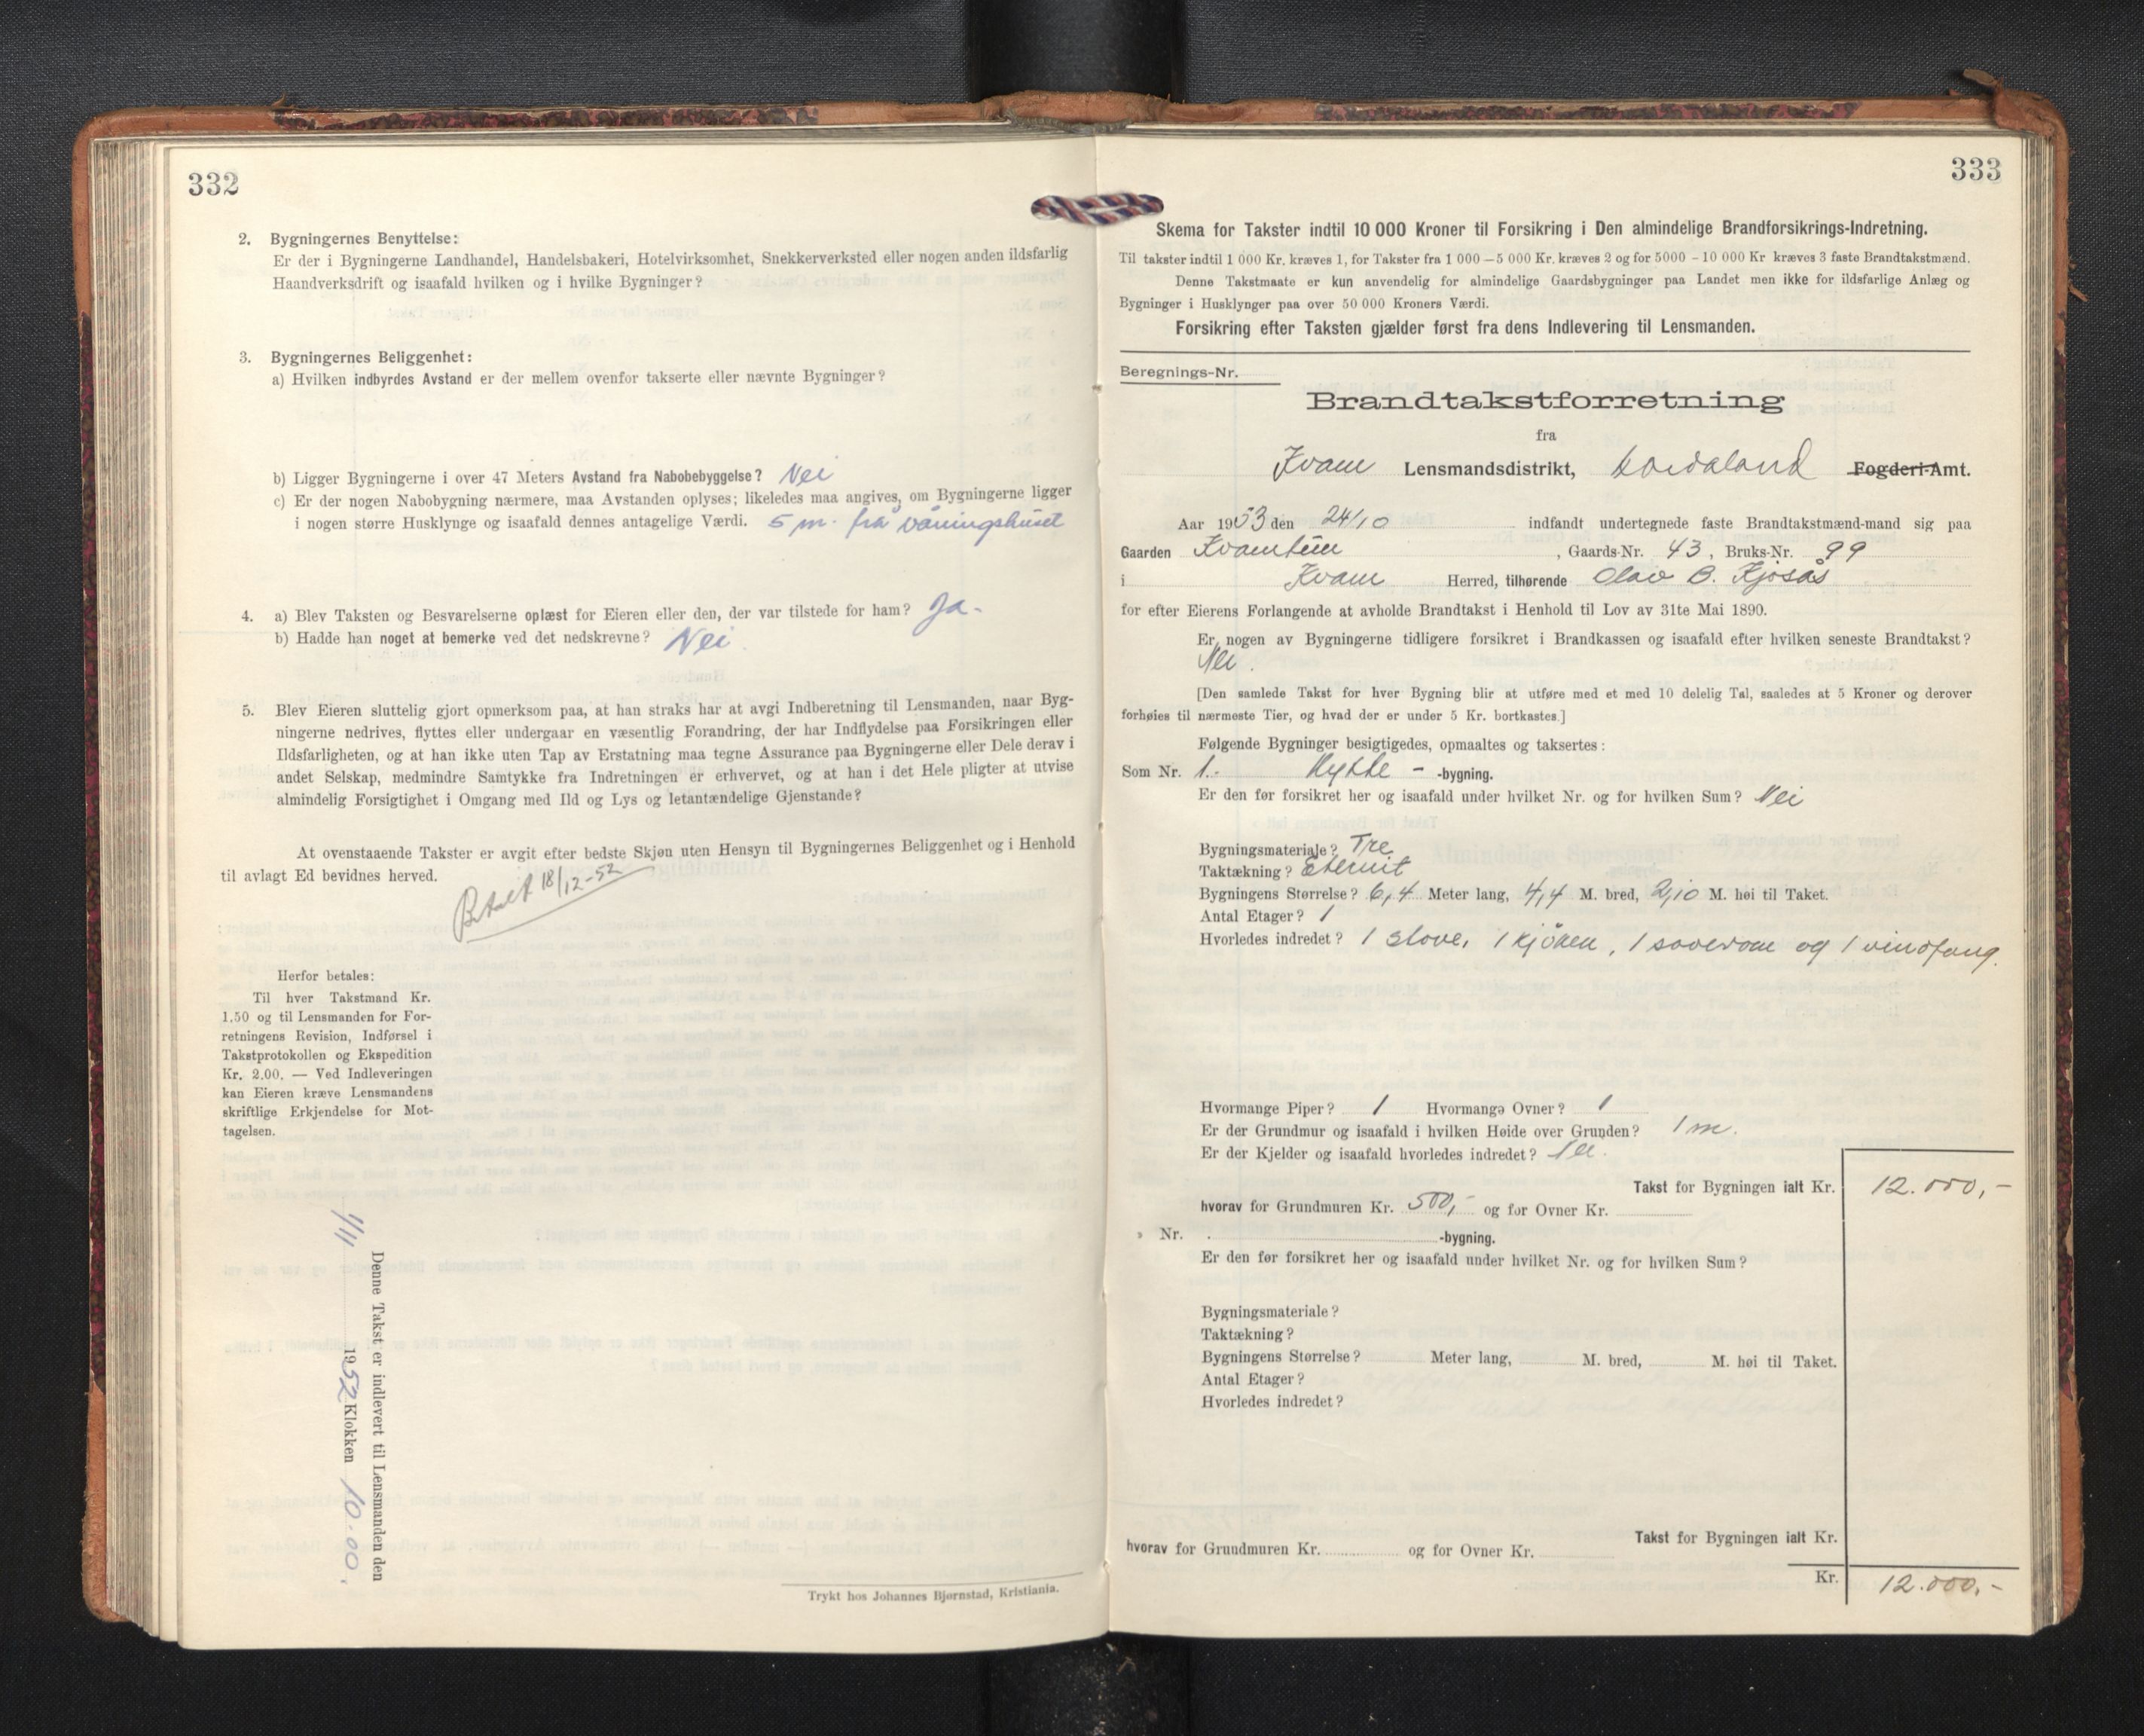 332
2. Bygningernes Benyttelse:
Er der i Bygningerne Landhandel, Handelsbakeri, Hotelvirksomhet, Snekkerverksted eller nogen anden ildsfarlig
Haandverksdrift og isaafald hvilken og i hvilke Bygninger?
3. Bygningernes Beliggenhet:
a) Hvilken indbyrdes Avstand er der mellem ovenfor takserte eller nævnte Bygninger?
b) Ligger Bygningerne i over 47 Meters Avstand fra Nabobebyggelse? Nei
c) Er der nogen Nabobygning nærmere, maa Avstanden oplyses; likeledes maa angives, om Bygningerne ligger
i nogen større Husklynge og isaafald dennes antagelige Værdi. 5 m. frå våningshuset
4. a) Blev Taksten og Besvarelserne oplæst for Eieren eller den, der var tilstede for ham? Ja-
b) Hadde han noget at bemerke ved det nedskrevne? Nei
5. Blev Eieren sluttelig gjort opmerksom paa, at han straks har at avgi Indberetning til Lensmanden, naar Byg-
ningerne nedrives, flyttes eller undergaar en væsentlig Forandring, der har Indflydelse paa Forsikringen eller
Ildsfarligheten, og at han ikke uten Tap av Erstatning maa tegne Assurance paa Bygningerne eller Dele derav i
andet Selskap, medmindre Samtykke fra Indretningen er erhvervet, og at han i det Hele pligter at utvise
almindelig Forsigtighet i Omgang med Ild og Lys og letantændelige Gjenstande?
At ovenstaaende Takster er avgit efter bedste Skjøn uten Hensyn til Bygningernes Beliggenhet og i Henhold
til avlagt Ed bevidnes herved.
Betalt 18/12-52
Herfor betales:
Til hver Takstmand Kr.
1,50 og til Lensmanden for For-
retningens Revision, Indførsel i
Takstprotokollen og Ekspedition
Kr. 2,00. — Ved Indleveringen
kan Eieren kræve Lensmandens
skriftlige Erkjendelse for Mot-
tagelsen.
Denne Takst er indlevert til Lensmanden den
1/11 1952 Klokken 10.00.
Trykt hos Johannes Bjørnstad, Kristiania.
333
Skema for Takster indtil 10 000 Kroner til Forsikring i Den almindelige Brandforsikrings-Indretning.
Til takster indtil 1 000 Kr. kræves 1, for Takster fra 1 000 — 5 000 Kr. kræves 2 og for 5000 — 10 000 Kr kræves 3 faste Brandtakstmænd.
Denne Takstmaate er kun anvendelig for almindelige Gaardsbygninger paa Landet men ikke for ildsfarlige Anlæg og
Bygninger i Husklynger paa over 50 000 Kroners Værdi.
Forsikring efter Taksten gjælder først fra dens Indlevering til Lensmanden.
Beregnings-Nr.
Brandtakstforretning
fra
Kvam Lensmandsdistrikt, Hordaland Fogderi-Amt.
Aar 1953 den 24/10 indfandt undertegnede faste Brandtakstmænd-mand sig paa
Gaarden Kvamtun, Gaards-Nr. 43, Bruks-Nr. 99
i Kvam Herred, tilhørende Olav B. Kjosås
for efter Eierens Forlangende at avholde Brandtakst i Henhold til Lov av 31te Mai 1890.
Er nogen av Bygningerne tidligere forsikret i Brandkassen og isaafald efter hvilken seneste Brandtakst?
Nei.
[Den samlede Takst for hver Bygning blir at utføre med et med 10 delelig Tal, saaledes at 5 Kroner og derover
forhøies til nærmeste Tier, og hvad der er under 5 Kr. bortkastes.]
Følgende Bygninger besigtigedes, opmaaltes og taksertes:
Som Nr. 1.- Hytte - -bygning.
Er den før forsikret her og isaafald under hvilket Nr. og for hvilken Sum? Nei
Bygningsmateriale? Tre
Taktækning? Eternit
Bygningens Størrelse? 6,4 Meter lang, 4,4 M. bred, 2,10 M. høi til Taket.
Antal Etager? 1
Hvorledes indredet? 1 stove, 1 kjöken, 1 soverom og 1 vindfang.
Hvormange Piper? 1 Hvormange Ovner? 1
Er der Grundmur og isaafald i hvilken Høide over Grunden? 1 m.
Er der Kjelder og isaafald hvorledes indredet? Nei.
Takst for Bygningen ialt Kr. 12.000,-
hvorav for Grundmuren Kr. 500,- og for Ovner Kr.
» Nr. -bygning.
Er den før forsikret her og isaafald under hvilket Nr. og for hvilken Sum?
Bygningsmateriale?
Taktækning?
Bygningens Størrelse? Meter lang, M. bred, M. høi til Taket.
Antal Etager?
Hvorledes indredet?
Takst for Bygningen ialt Kr.
hvorav for Grundmuren Kr. og for Ovner Kr.
Kr. 12.000,-